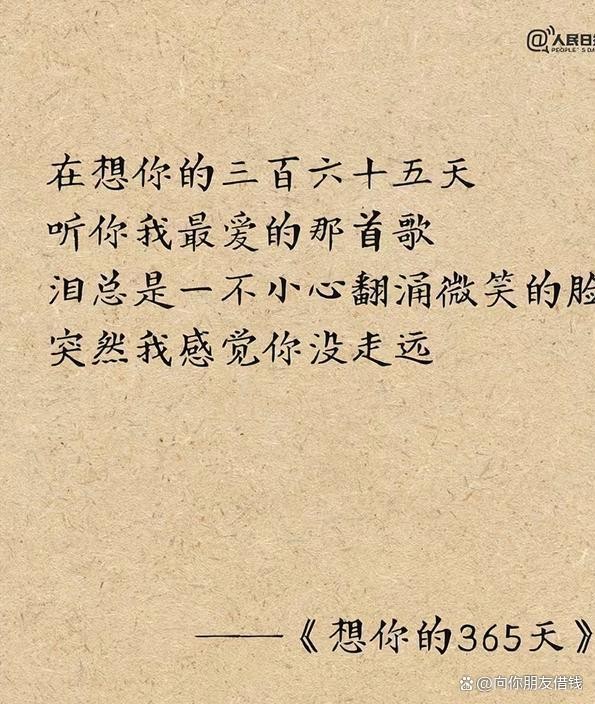 @人民日报
PEOPLE'S DA
在想你的三百六十五天
听你我最爱的那首歌
泪总是一不小心翻涌微笑的脸
突然我感觉你没走远
——《想你的365天》
@向你朋友借钱